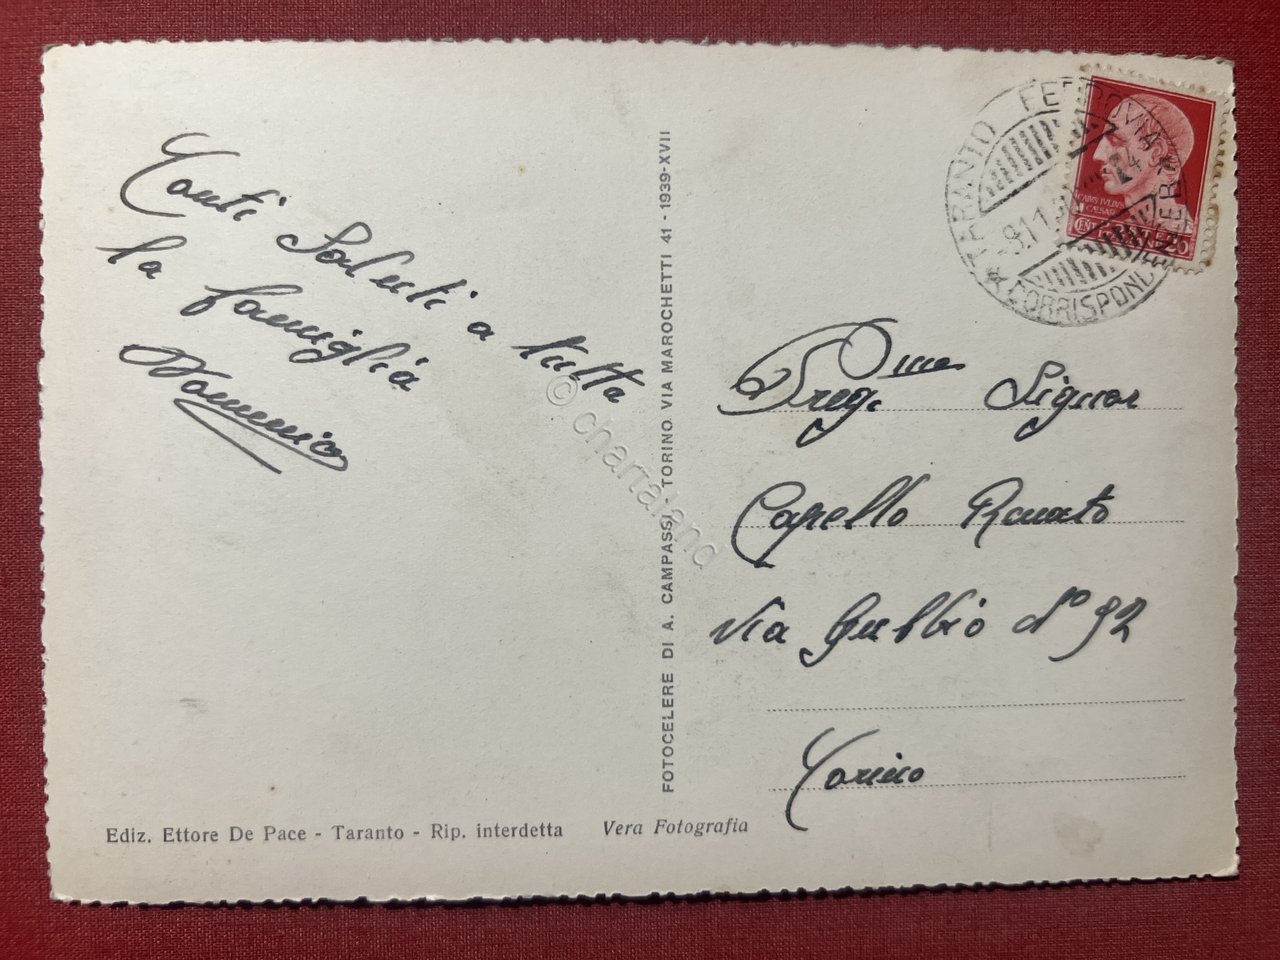 Tanti Saluti a tutta
la famiglia
Domenico
Ediz. Ettore De Pace - Taranto - Rip. interdetta
Vera Fotografia
FOTOCELERE DI A. CAMPASSI - TORINO VIA MAROCHETTI 41 - 1939-XVII
TARANTO FERROVIA
CORRISPONDENZE
CAIVS IVLIVS
CAESAR
20
Preg.mo Signor
Capello Renato
Via Gubbio N° 92
Torino
© chartaland